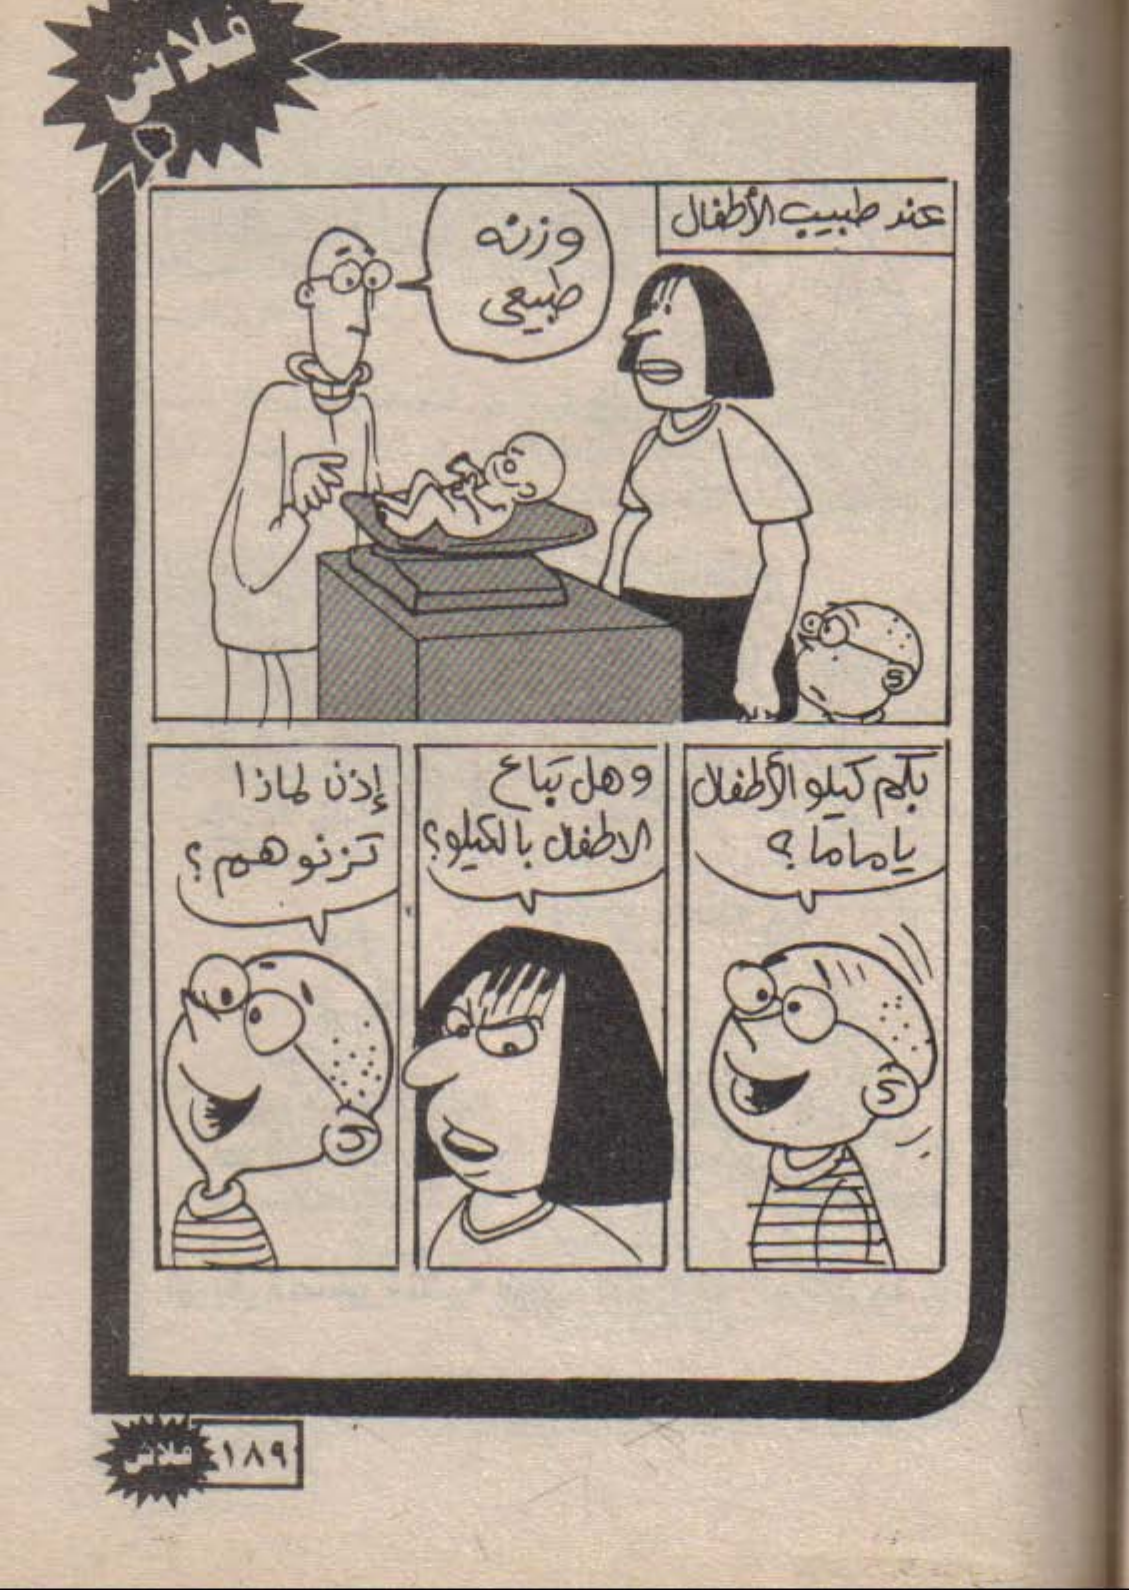 فلاش
عند طبيب الأطفال
وزنه
طبيعى
بكم كيلو الأطفال
يا ماما ؟
وهل تباع
الاطفال بالكيلو؟
إذن لماذا
تزنوهم ؟
١٨٩
فلاش